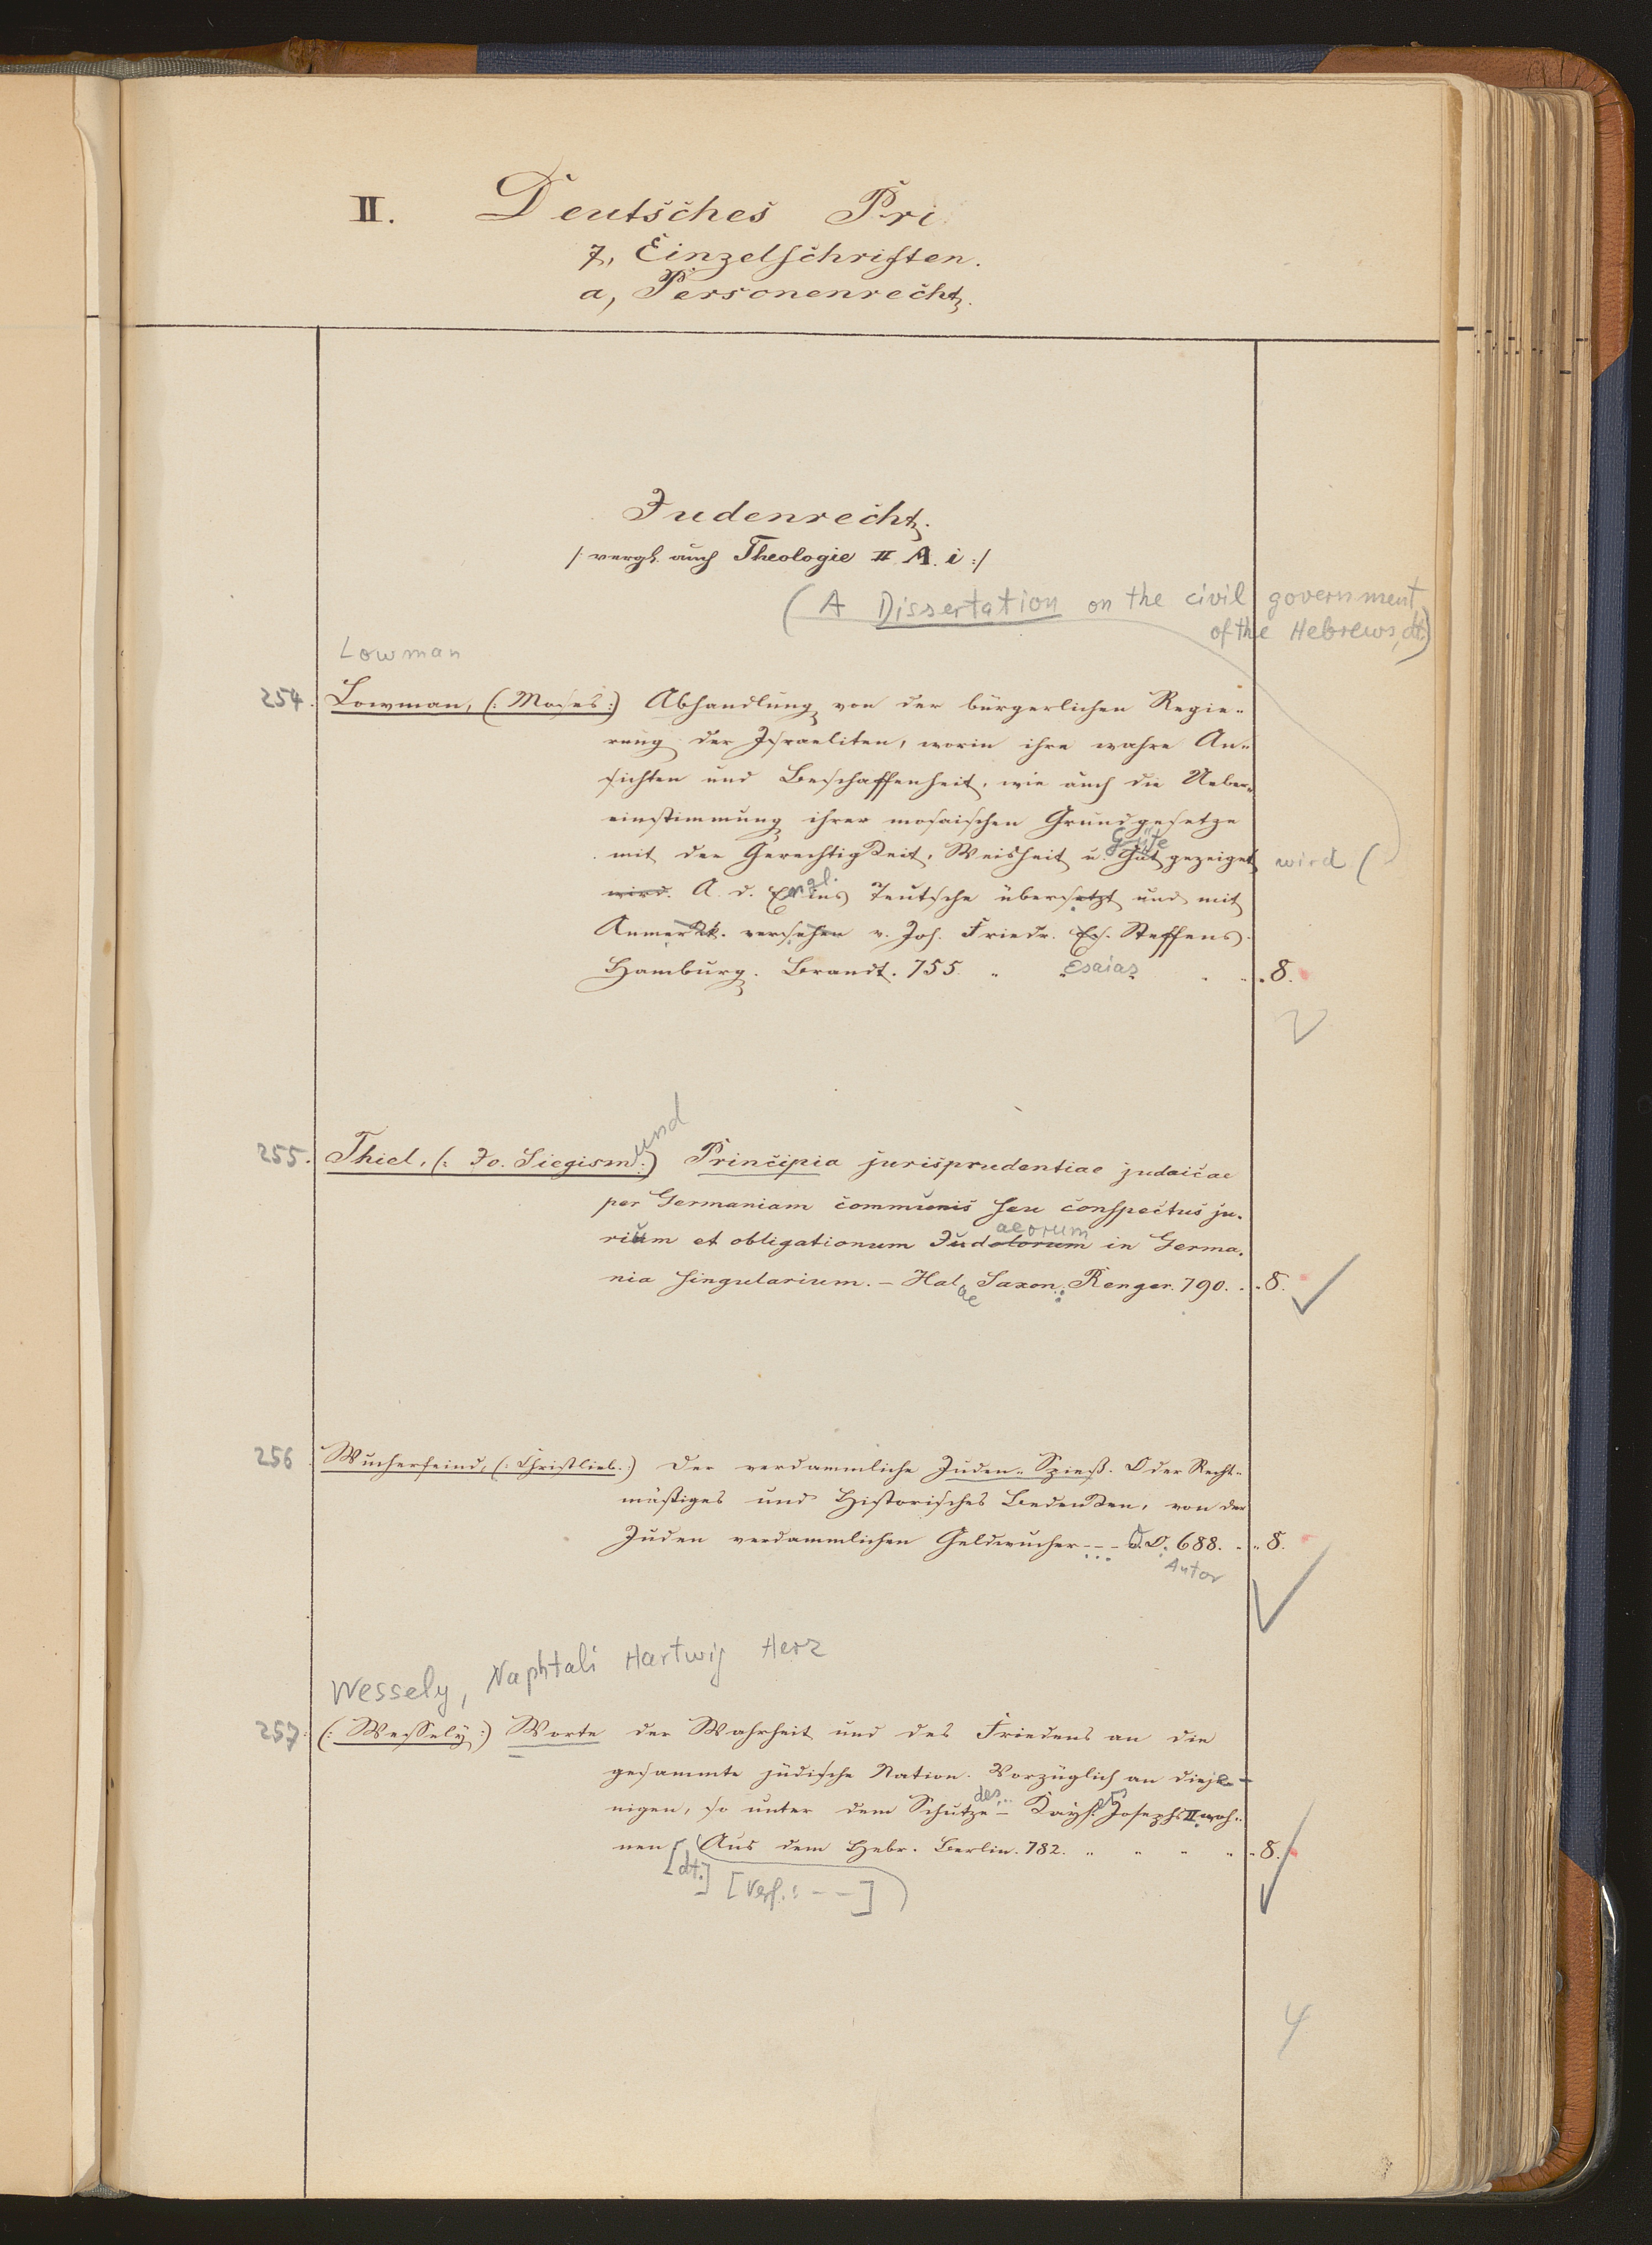 II. Deutsches Pri
7, Einzelschriften.
a, Personenrecht.
Judenrecht.
/: vergl. auch Theologie II A. i :/
(A Dissertation on the civil government
of the Hebrews, dt.)
Lowman
254. Lowman, (: Moses :) Abhandlung von der bürgerlichen Regie-
rung der Israeliten, worin ihre wahre An-
sichten und Beschaffenheit, wie auch die Ueber-
einstimmung ihrer mosaischen Grundgesetze
Güte
mit der Gerechtigkeit, Weisheit u. Güt gezeiget wird (
wird. A. d. Engl. ins Teutsche übersetzt und mit
Anmerkk. versehen v. Joh. Friedr. Es. Steffens.
Hamburg. Brandt. 755. Esaias 8.
255. Thiel, (: Jo. Siegismund :) Principia jurisprudentiae judaicae
per Germaniam communis seu conspectus ju-
aeorum
rium et obligationum Judolorum in Germa-
nia singularium. – Halae Saxon. Renger. 790. 8.
256 Wucherfeind, (: Christlieb. :) Der verdammliche Juden-Spieß. Oder Recht-
mäßiges und Historisches Bedenken, von der
Juden verdammlichen Geldwucher - - - O. 688. 8.
Autor
Wessely, Naphtali Hartwig Herz
257. (: Wessely :) Worte der Wahrheit und des Friedens an die
gesammte jüdische Nation. Vorzüglich an dieje-
des
nigen, so unter dem Schutze – Kays. Josephs II woh-
nen (Aus dem Hebr. Berlin. 782. 8.
[dt.] [Verf.: – –] )
4